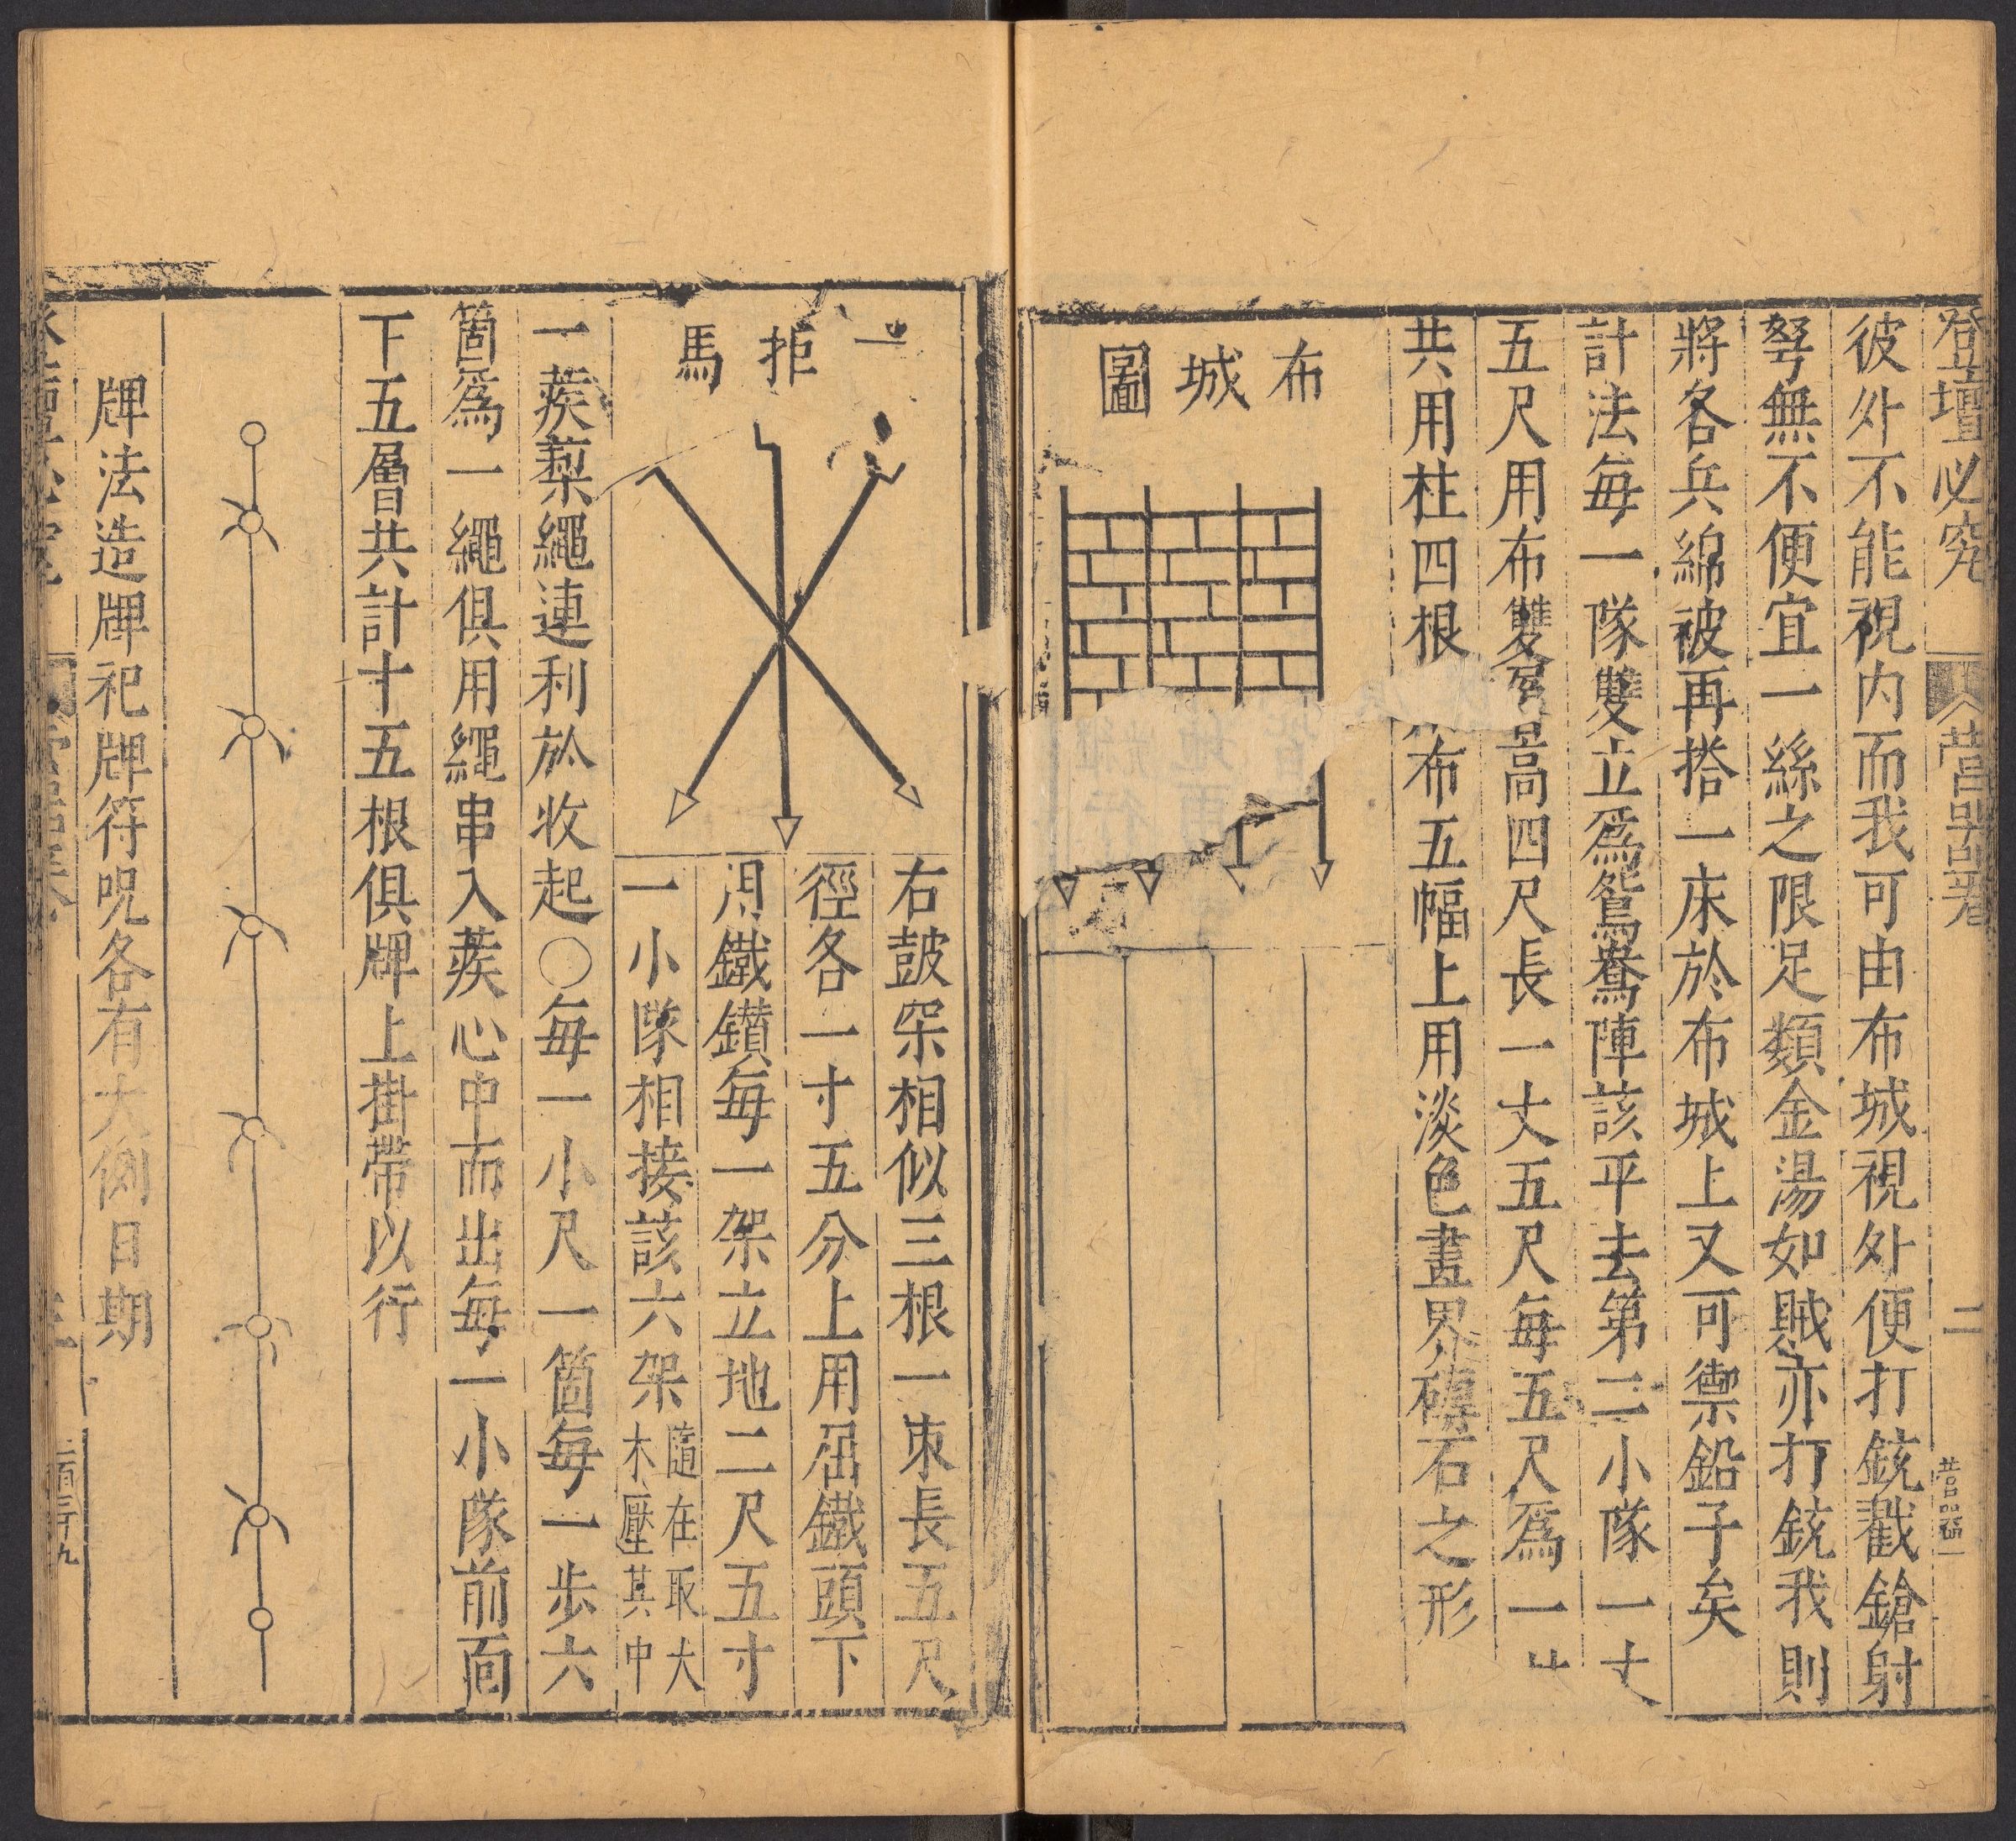 登壇必究
營器卷
二
營器一
彼外不能視内而我可由布城視外便打銃戳鎗射
弩無不便宜一絲之限足類金湯如賊亦打銃我則
將各兵綿被再搭一床於布城上又可禦鉛子矣
計法每一隊雙立爲鴛鴦陣該平去第二小隊一丈
五尺用布雙層高四尺長一丈五尺每五尺爲一
共用柱四根 布五幅上用淡色畫界磚石之形
布城圖
一拒馬
右鼓架相似三根一束長五尺
徑各一寸五分上用屈鐵頭下
用鐵鑽每一架立地二尺五寸
一小隊相接該六架隨在取大
木壓其中
一蒺藜繩連利於收起○每一小尺一箇每一步六
箇爲一繩俱用繩串入蒺心中而出每一小隊前面
下五層共計十五根俱牌上掛帶以行
牌法造牌祀牌符呪各有大例日期